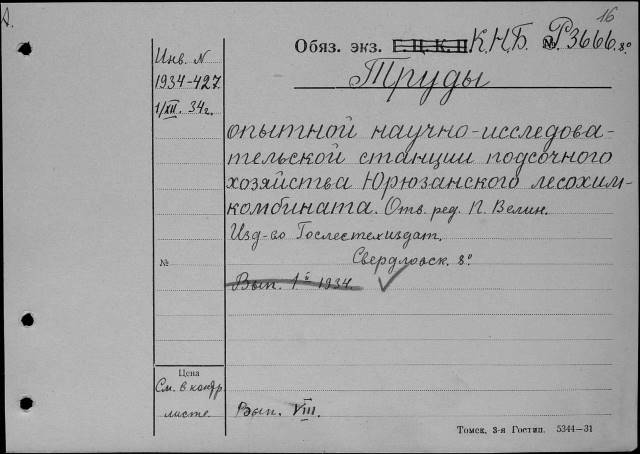 А.
16
Обяз. экз. Г.Ц.К.П К.Н.Б. № Р3666. 8°
Инв. N
1934-427.
1/XII. 34г.
Труды
опытной научно-исследова-
тельской станции подсочного
хозяйства Юрюзанского лесохим-
комбината. Отв. ред. П. Велин.
Изд-во Гослестехиздат.
Свердловск. 8°
№
Вып. 1й 1934.
Цена
См. в контр
листе.
Вып. VIII.
Томск. 3-я Гостип. 5344—31